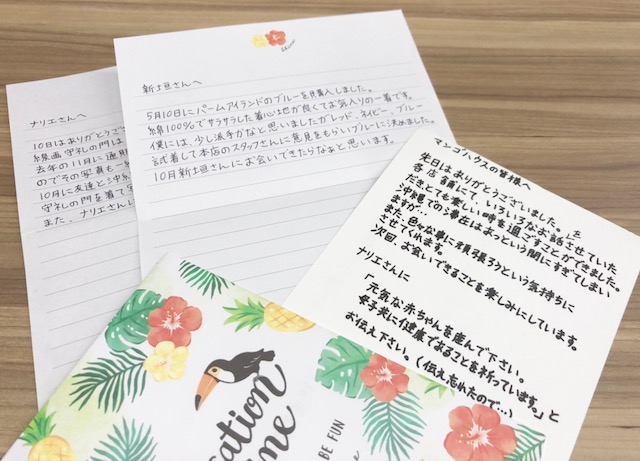 ナリエさんへ
10日はありがとうござ
線画守礼の門は
去年の11月に通販
のでその写真も
10月に友達と沖縄
守礼の門を着て写
また、ナリエさんに
新土亘さんへ
5月10日にパームアイランドのブルーを購入しました。
綿100%でサラサラした着心地が良くてお気入りの一着です。
僕には、少し派手かなと思いましたがレッド、ネイビー、ブルー
試着して本店のスタッフさんに意見をもらいブルーに決めました。
10月新土亘さんにお会いできたらなぁと思います。
マンゴハウスの皆様へ
先日はありがとうございました。
各店舗にて、いろいろなお話させていた
だきとても楽しい時を過ごすことができました。
沖縄での滞在はあっという間にすぎてしまい
ますが…
また、色々な事に頑張ろうという気持ちに
させてくれます。
次回、お会いできることを楽しみにしています。
ナリエさんに
「元気な赤ちゃんを産んで下さい。
母子共に健康であることを祈っています。」と
お伝え下さい。(伝え忘れたので…)
cation
BE FUN